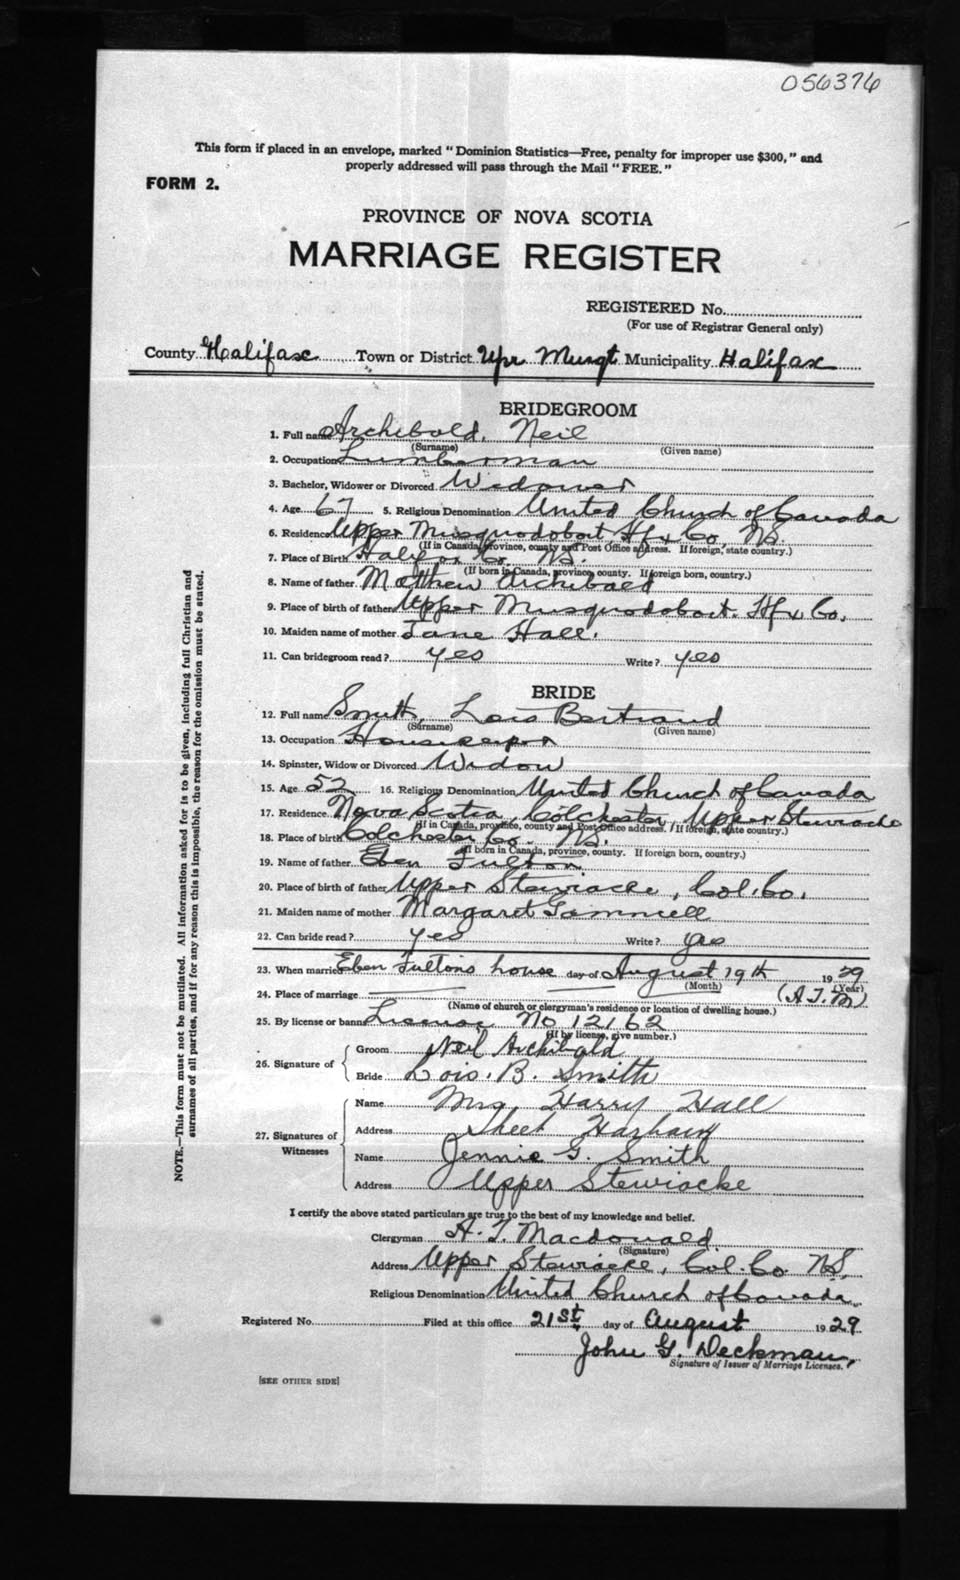 056376
This form if placed in an envelope, marked "Dominion Statistics—Free, penalty for improper use $300," and
properly addressed will pass through the Mail "FREE."
FORM 2.
PROVINCE OF NOVA SCOTIA
MARRIAGE REGISTER
REGISTERED No.
(For use of Registrar General only)
County Halifax Town or District Upr Musqt Municipality Halifax
BRIDEGROOM
1. Full name Archibald, Neil
(Surname) (Given name)
2. Occupation Lumberman
3. Bachelor, Widower or Divorced Widower
4. Age 67 5. Religious Denomination United Church of Canada
6. Residence Upper Musquodoboit, Hfx Co, NS.
(If in Canada, province, county and Post Office address. If foreign, state country.)
7. Place of Birth Halifax Co. NS
(If born in Canada, province, county. If foreign born, country.)
8. Name of father Matthew Archibald
9. Place of birth of father Upper Musquodoboit. Hfx Co.
10. Maiden name of mother Jane Hall.
11. Can bridegroom read? yes Write? yes
BRIDE
12. Full name Smith, Lois Bertrand
(Surname) (Given name)
13. Occupation Housekeeper
14. Spinster, Widow or Divorced Widow
15. Age 52 16. Religious Denomination United Church of Canada
17. Residence Nova Scotia, Colchester, Upper Stewiacke
(If in Canada, province, county and Post Office address. If foreign, state country.)
18. Place of birth Colchester Co. NS.
(If born in Canada, province, county. If foreign born, country.)
19. Name of father Eben Fulton
20. Place of birth of father Upper Stewiacke, Col. Co.
21. Maiden name of mother Margaret Gammell
22. Can bride read? yes Write? yes
23. When married Eben Fultons house day of August 19th 1929
(Month) (Year)
24. Place of marriage (A.T.M)
(Name of church or clergyman's residence or location of dwelling house.)
25. By license or banns License No 12162
(If by license, give number.)
26. Signature of
Groom Neil Archibald
Bride Lois. B. Smith
27. Signatures of Witnesses
Name Mrs Harry Hall
Address Sheet Harbour
Name Jennie G. Smith
Address Upper Stewiacke
I certify the above stated particulars are true to the best of my knowledge and belief.
Clergyman A. T. Macdonald
(Signature)
Address Upper Stewiacke, Col. Co NS.
Religious Denomination United Church of Canada
Registered No. Filed at this office 21st day of August 1929
John G. Deckman,
Signature of Issuer of Marriage Licenses.
[SEE OTHER SIDE]
NOTE.—This form must not be mutilated. All information asked for is to be given, including full Christian and
surnames of all parties, and if for any reason this is impossible, the reason for the omission must be stated.